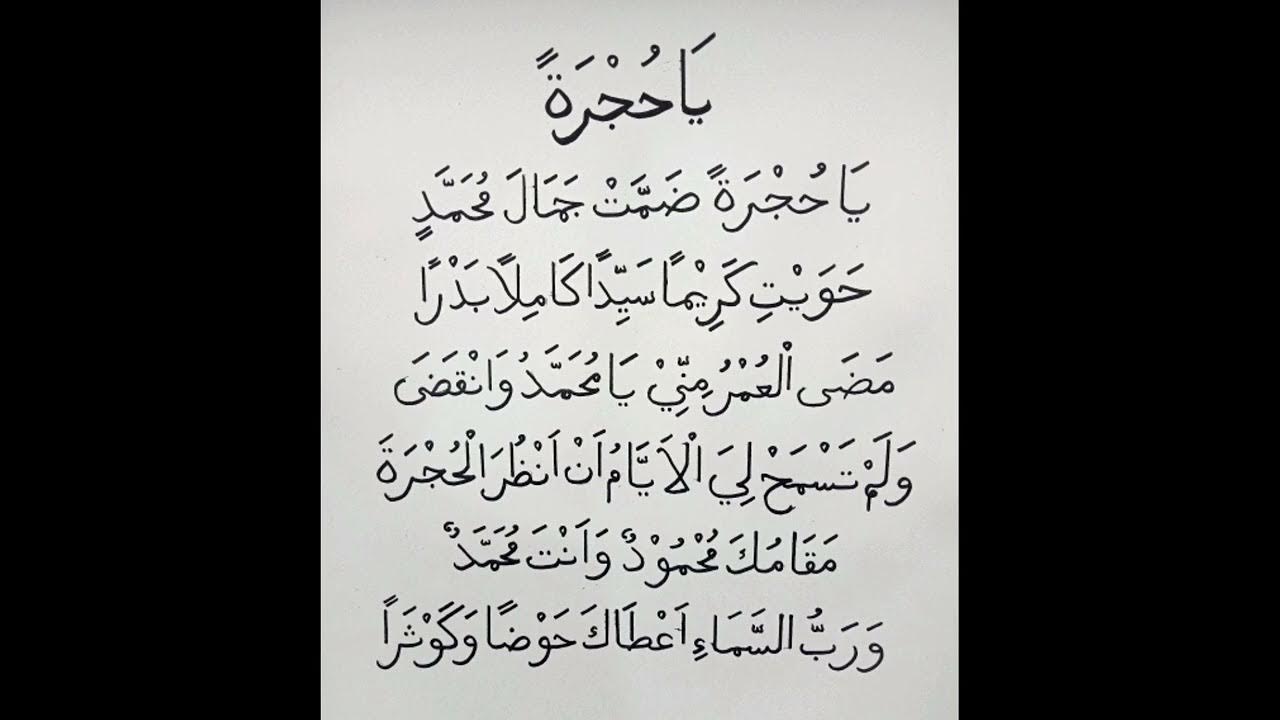 يَا حُجْرَةً
يَا حُجْرَةً ضَمَّتْ جَمَالَ مُحَمَّدٍ
حَوَيْتِ كَرِيْمًا سَيِّدًا كَامِلًا بَدْرًا
مَضَى الْعُمْرُ مِنِّيْ يَا مُحَمَّدُ وَانْقَضَى
وَلَمْ تَسْمَحْ لِيَ الْاَيَّامُ اَنْ اَنْظُرَ الْحُجْرَةَ
مَقَامُكَ مَحْمُوْدٌ وَاَنْتَ مُحَمَّدٌ
وَرَبُّ السَّمَاءِ اَعْطَاكَ حَوْضًا وَكَوْثَرًا